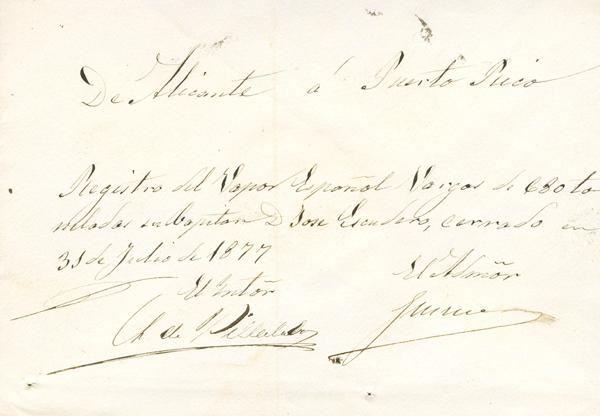 De Alicante á Puerto Rico
Registro del Vapor Español Vargas de 680 to
neladas su Capitan D. Jose Escudero, cerrado en
31 de Julio de 1877
El Intôr El Admôr
de Villalobos